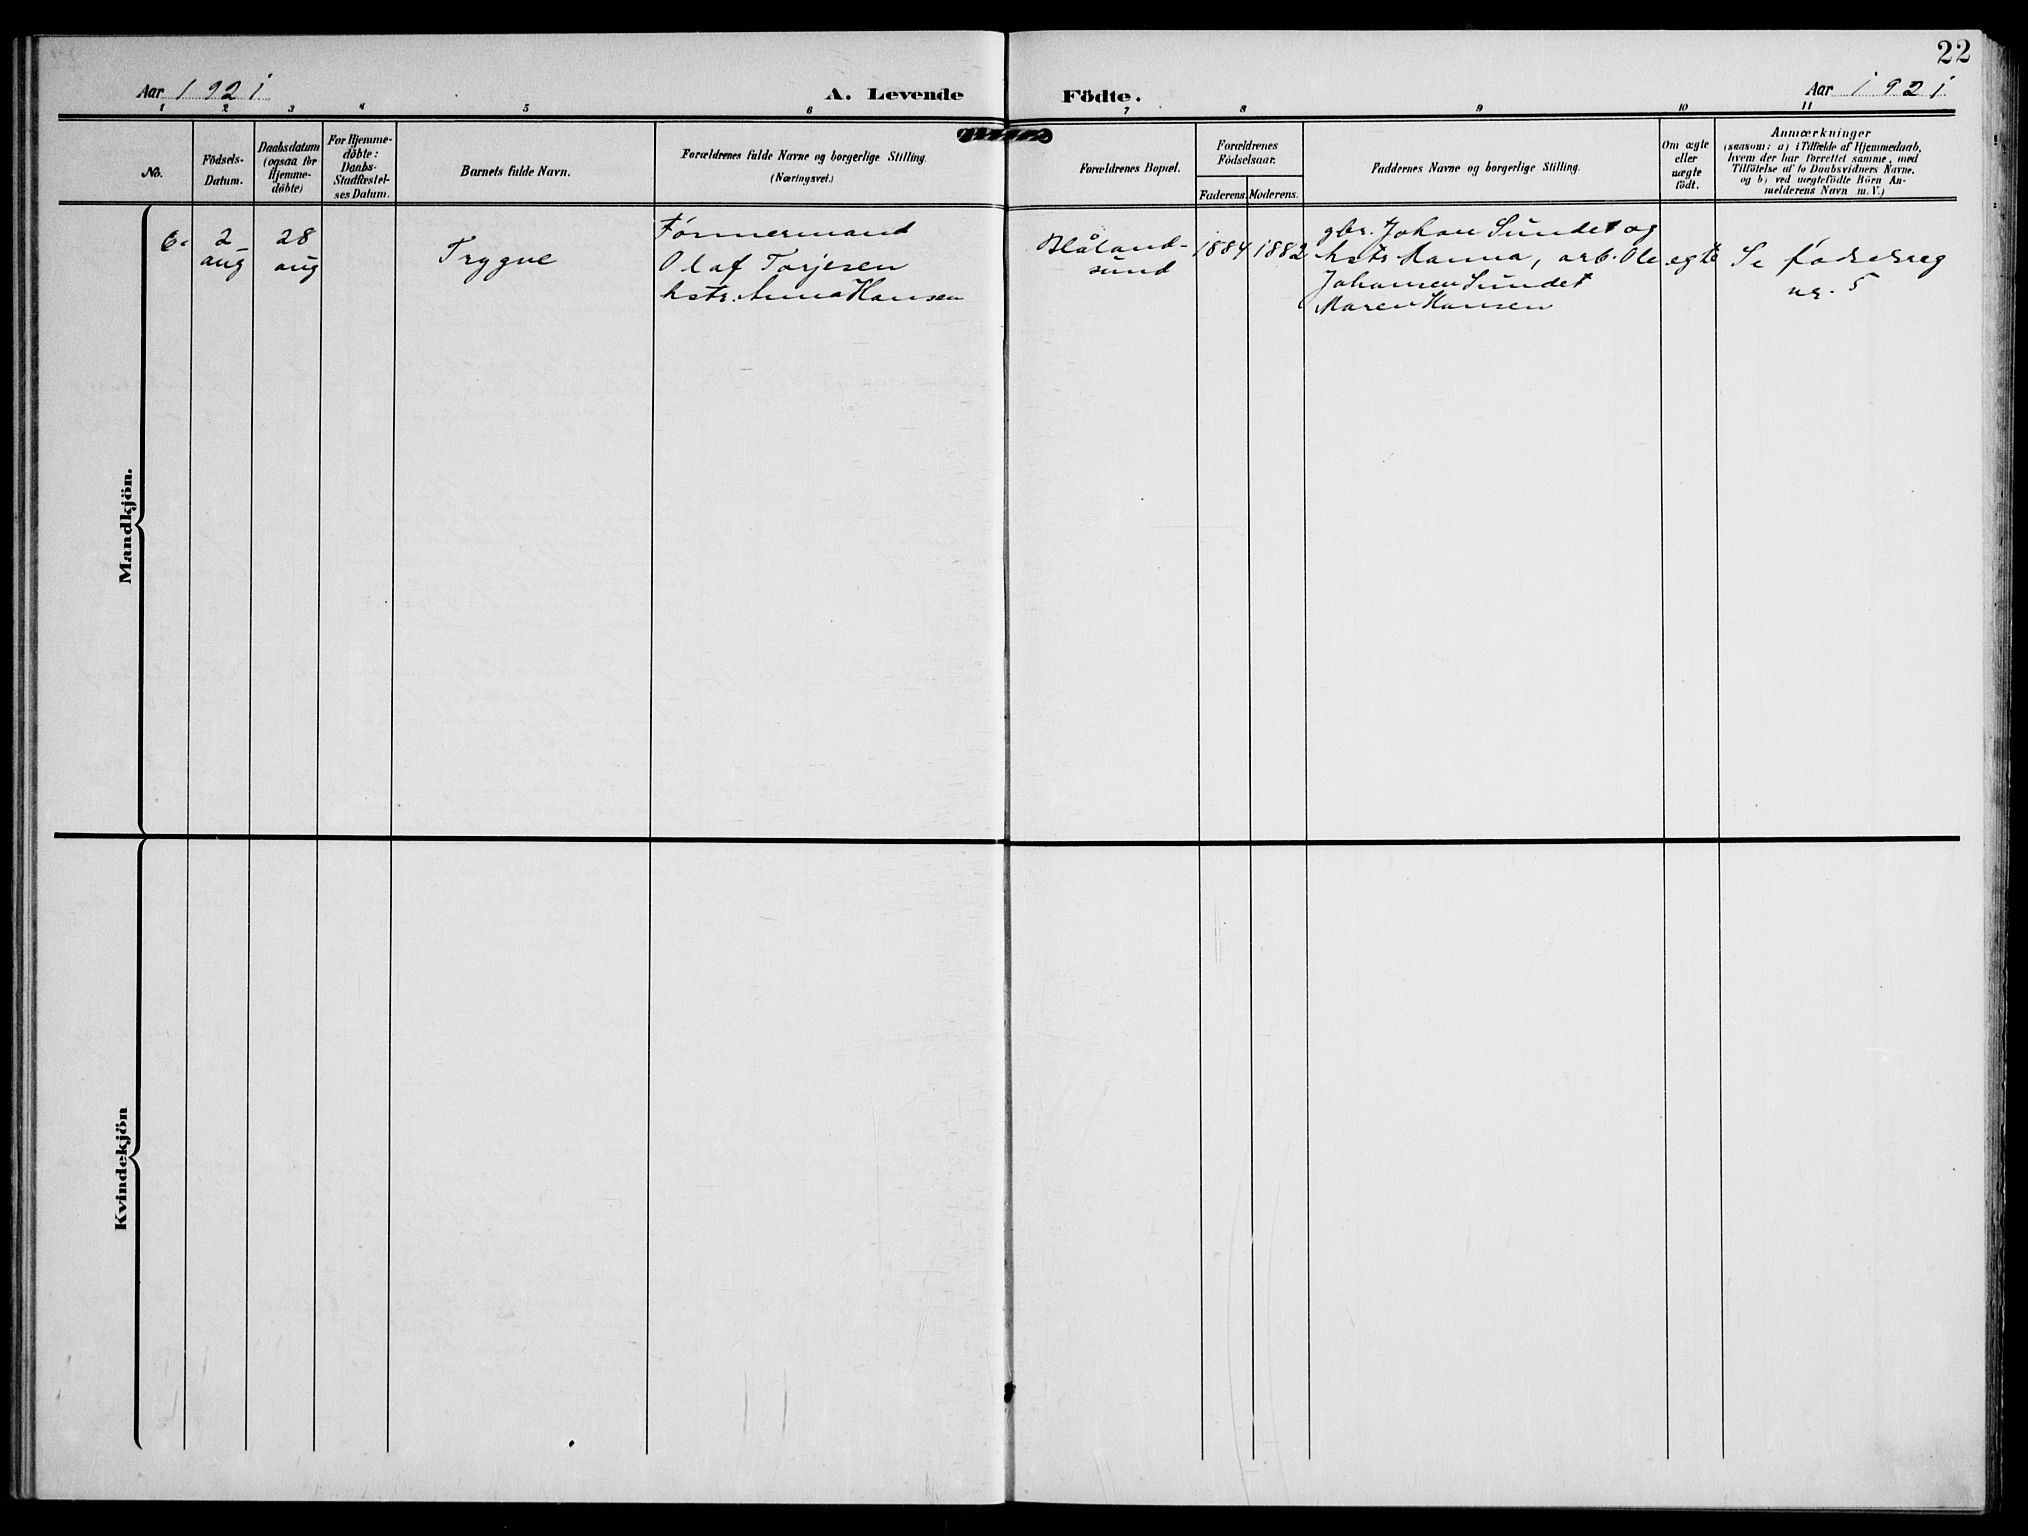 22
Aar 1921
A. Levende
Födte.
Aar 1921
1 2 3 4 5 6 7 8 9 10 11
No.
Födsels-
Datum.
Daabsdatum
(ogsaa for
Hjemme-
döbte)
For Hjemme-
döbte:
Daabs-
Stadfæstel-
ses Datum.
Barnets fulde Navn.
Forældrenes fulde Navne og borgerlige Stilling.
(Næringsvei.)
Forældrenes Bopæl.
Forældrenes
Födselsaar.
Faderens.
Moderens.
Faddernes Navne og borgerlige Stilling.
Om ægte
eller
uægte
födt.
Anmærkninger
(saasom: a) i Tilfælde af Hjemmedaab,
hvem der har forrettet samme, med
Tilföielse af to Daabsvidners Navne.
og b) ved uægtefödte Börn An-
melderens Navn m. V.)
Mandkjön.
6.
2
aug
28
aug
Trygve
Tømmermand
Olaf Torjesen
hstr. Anna Hansen
Håland-
sund
1884
1882
gbr. Johan Sundet og
hstr Hanna, arb. Ole
Johansen Sundet
Maren Hansen
egte
Se fødselsreg
nr. 5
Kvindekjön